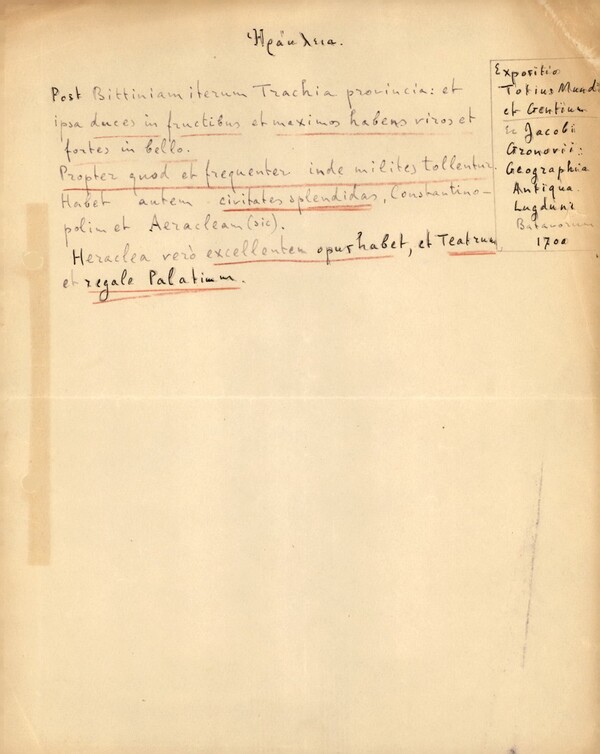 Ἡράκλεια.
Post Bittiniam iterum Trachia provincia: et
ipsa duces in fructibus et maximos habens viros et
fortes in bello.
Propter quod et frequenter inde milites tollentur.
Habet autem civitates splendidas, Constantino-
polim et Aeracleam (sic).
Heraclea verò excellentem opus habet, et Teatrum
et regale Palatium.
Expositio
Totius Mundi
et Gentium
Ex Jacobi
Gronovii:
Geographia
Antiqua.
Lugduni
Batavorum
1700